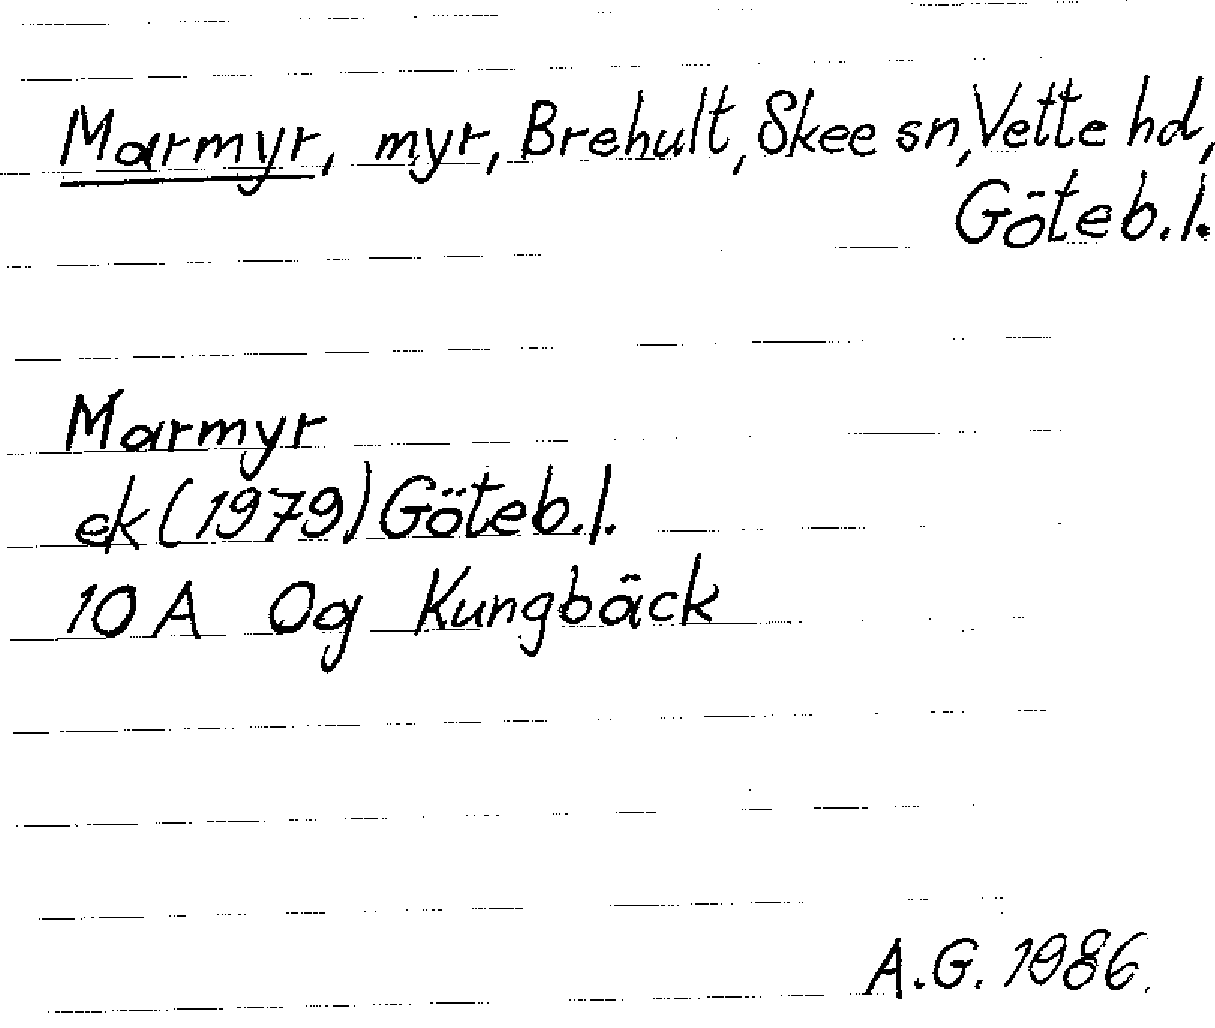 Marmyr, myr, Brehult, Skee sn, Vette hd,
Göteb. l.
Marmyr
ek (1979) Göteb. l.
10 A 0g Kungbäck
A.G. 1986.